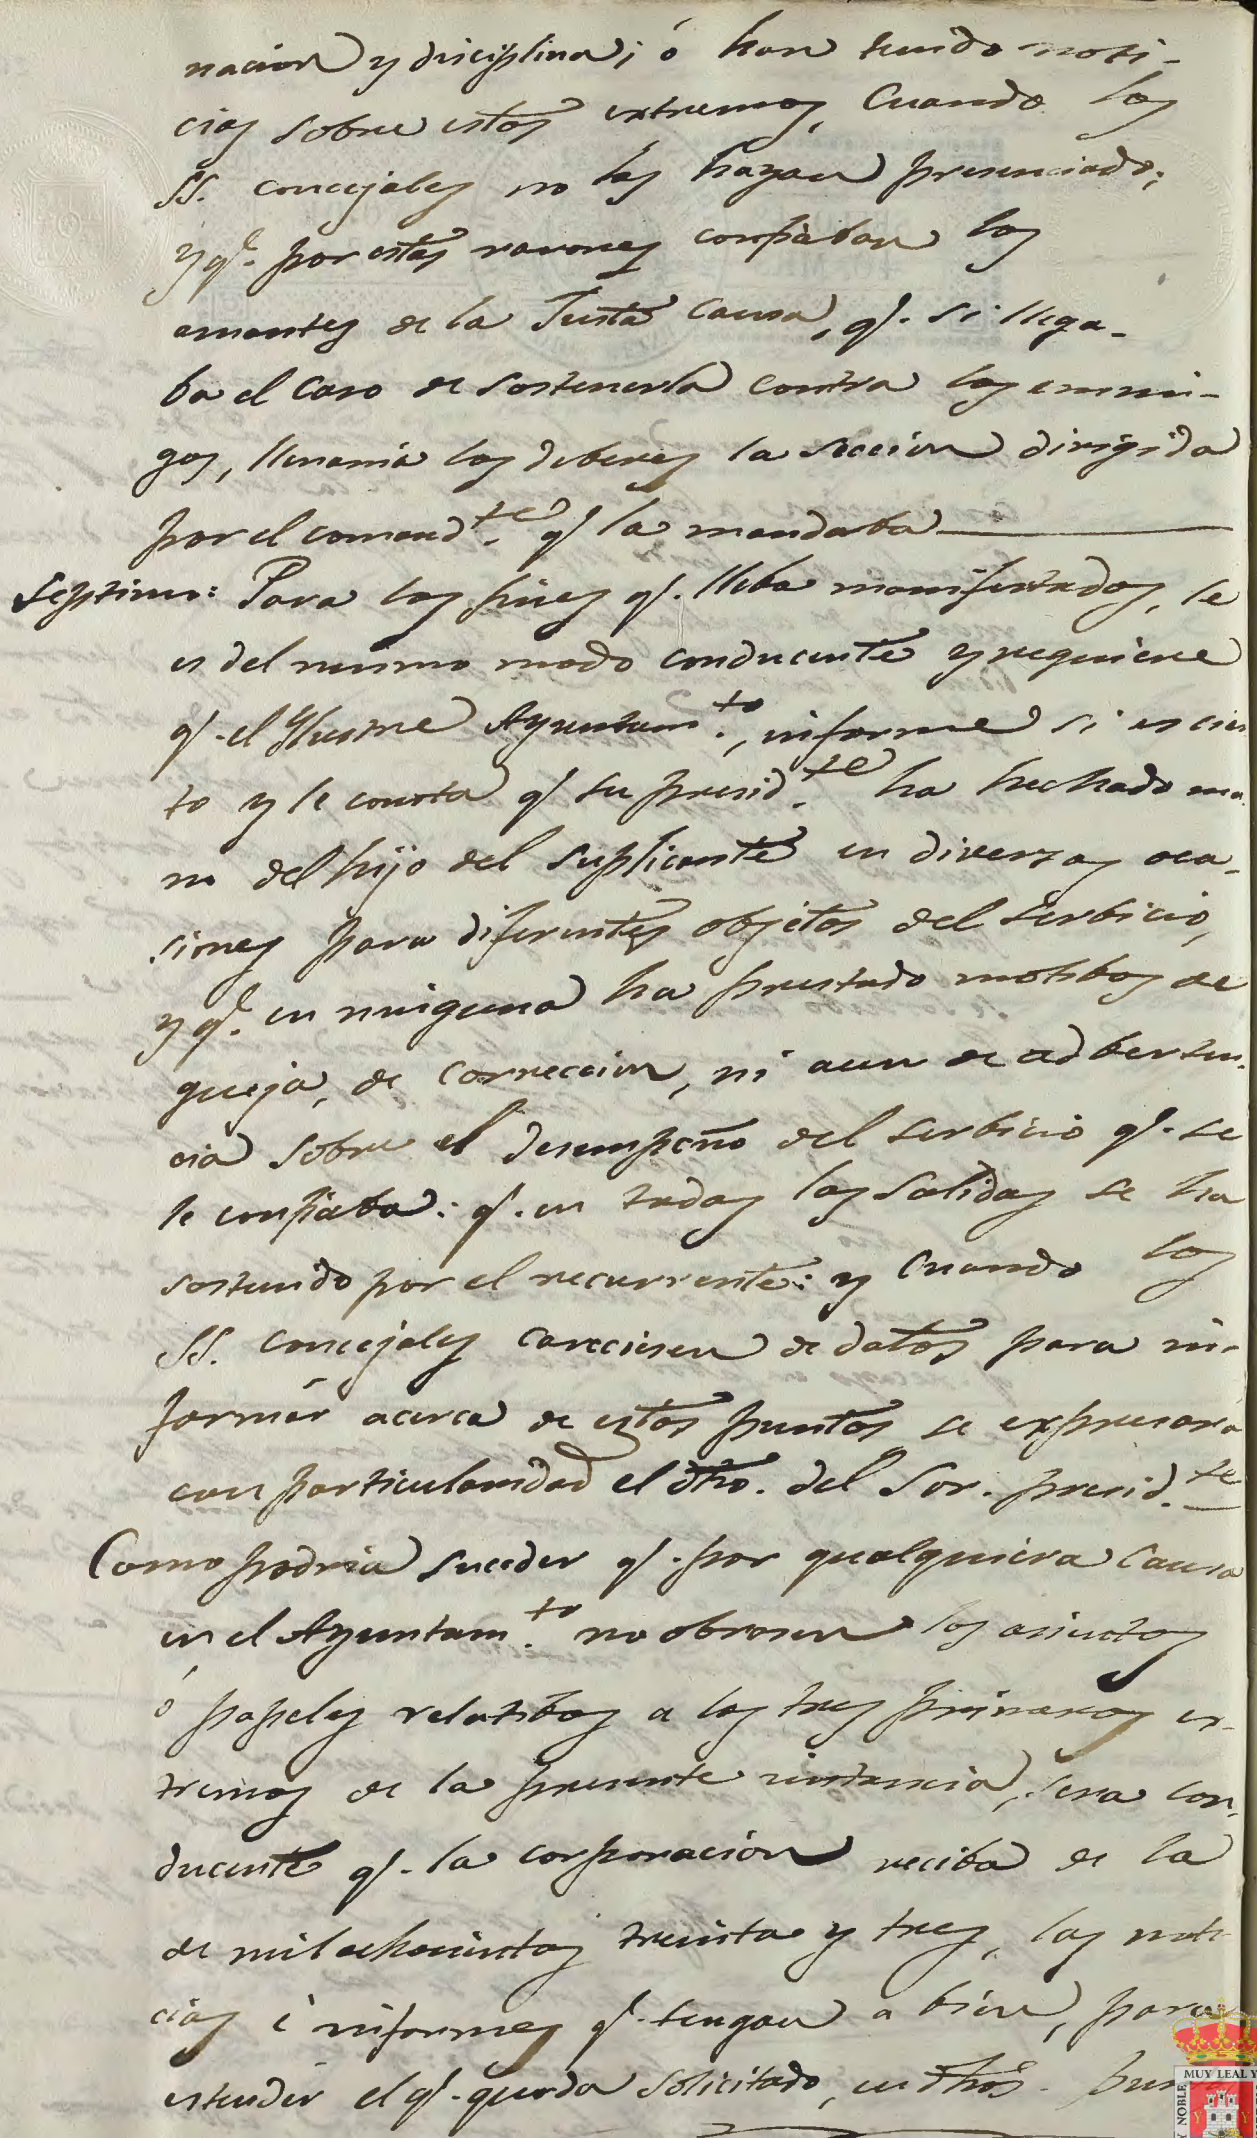 nacion y disciplina; ó han tenido noti-
cias sobre estos extremos, Cuando los
SS. concejales no las hayan presenciado;
y q.e por estas razones confiaban los
amantes de la Justa Causa, q.e si llega-
ba el caso de sostenerla contra los enemi-
gos, llenaria los deberes la seccion dirigida
por el comand.te q.e la mandaba
Septimo: Para los fines q.e lleba manifestados, le
es del mismo modo conducente y requiere
q.e el Ylustre Ayuntam.to, informe si es cier
to y le consta q.e su presid.te ha hechado ma
no del hijo del suplicante en diversas oca-
siones para diferentes objetos del serbicio,
y q.e en ninguna ha prestado motibos de
queja, de correccion, ni aun de adberten-
cia sobre el desempeño del serbicio q.e se
le confiaba: q.e en todas las salidas se ha
sostenido por el recurrente: y Cuando los
SS. concejales careciesen de datos para in-
formár acerca de estos puntos se expresará
con particularidad el dho. del Sor. presid.te
Como podria suceder q.e por qualquiera Causa
en el Ayuntam.to no obrasen los asientos
ó papeles relatibos a los tres primeros es-
tremos de la presente instancia, sera con-
ducente q.e la corporacion reciba de la
de mil ochocientos treinta y tres, las noti
cias é informes q.e tengan a bien, para
estender el q.e queda solicitado, en dhos.
MUY LEAL Y
NOBLE